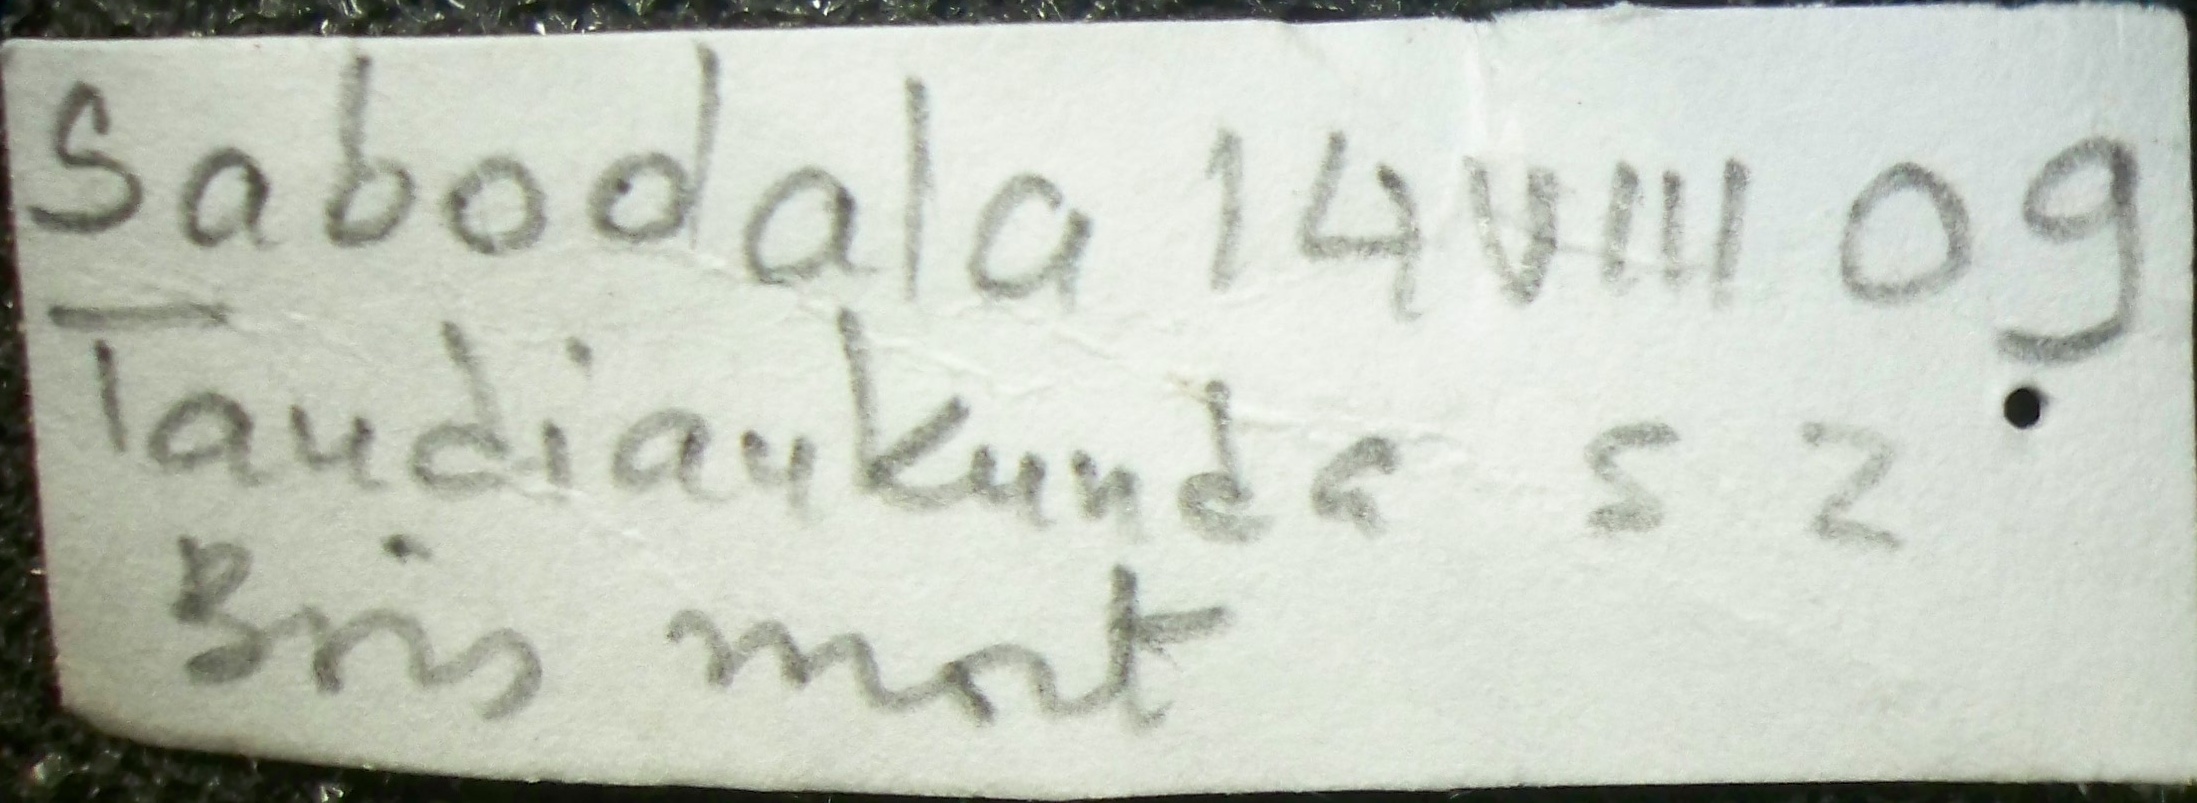 Sabodala 14 VIII 09
Tandiankunda S 2
Bois mort